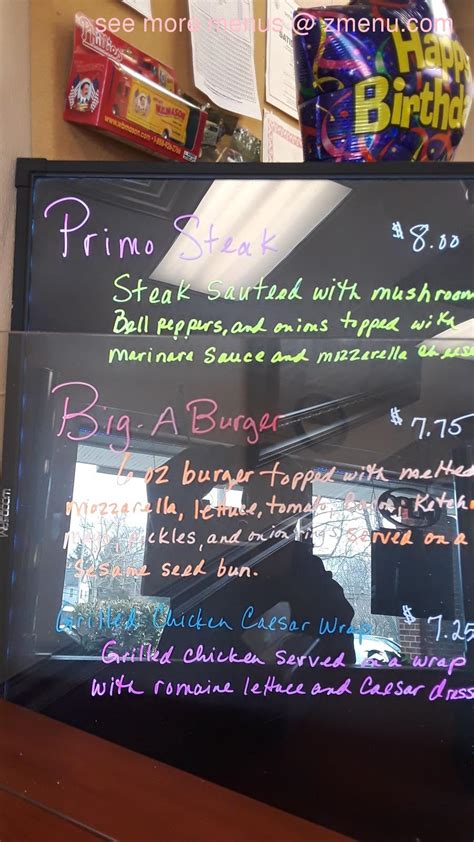 see more menus @ zmenu.com
Happy
Birthd
WB MASON
www.wbmason.com
Primo Steak $8.00
Steak sauteed with mushroom
Bell peppers, and onions topped with
marinara sauce and mozzarella cheese
Big-A Burger $7.75
6 oz burger topped with melted
mozzarella, lettuce, tomato, Ketch
pickles, and onion rings served on a
Sesame seed bun.
Grilled Chicken Caesar Wrap $7.25
Grilled chicken served on a wrap
with romaine lettuce and Caesar dress